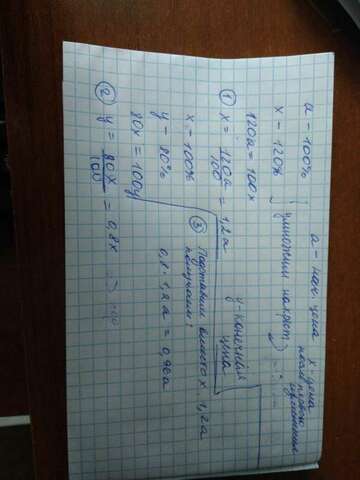 a - нач. цена
x - цена
после первого
изменения
a - 100%
x - 120%
умножим накрест
120a = 100x
① x = 120a/100 = 1,2a
y - конечная
цена
x - 100%
y - 80%
80x = 100y
② y = 80x/100 = 0,8x
③ Подставим вместо x 1,2a
получаем:
0,8 · 1,2a = 0,96a